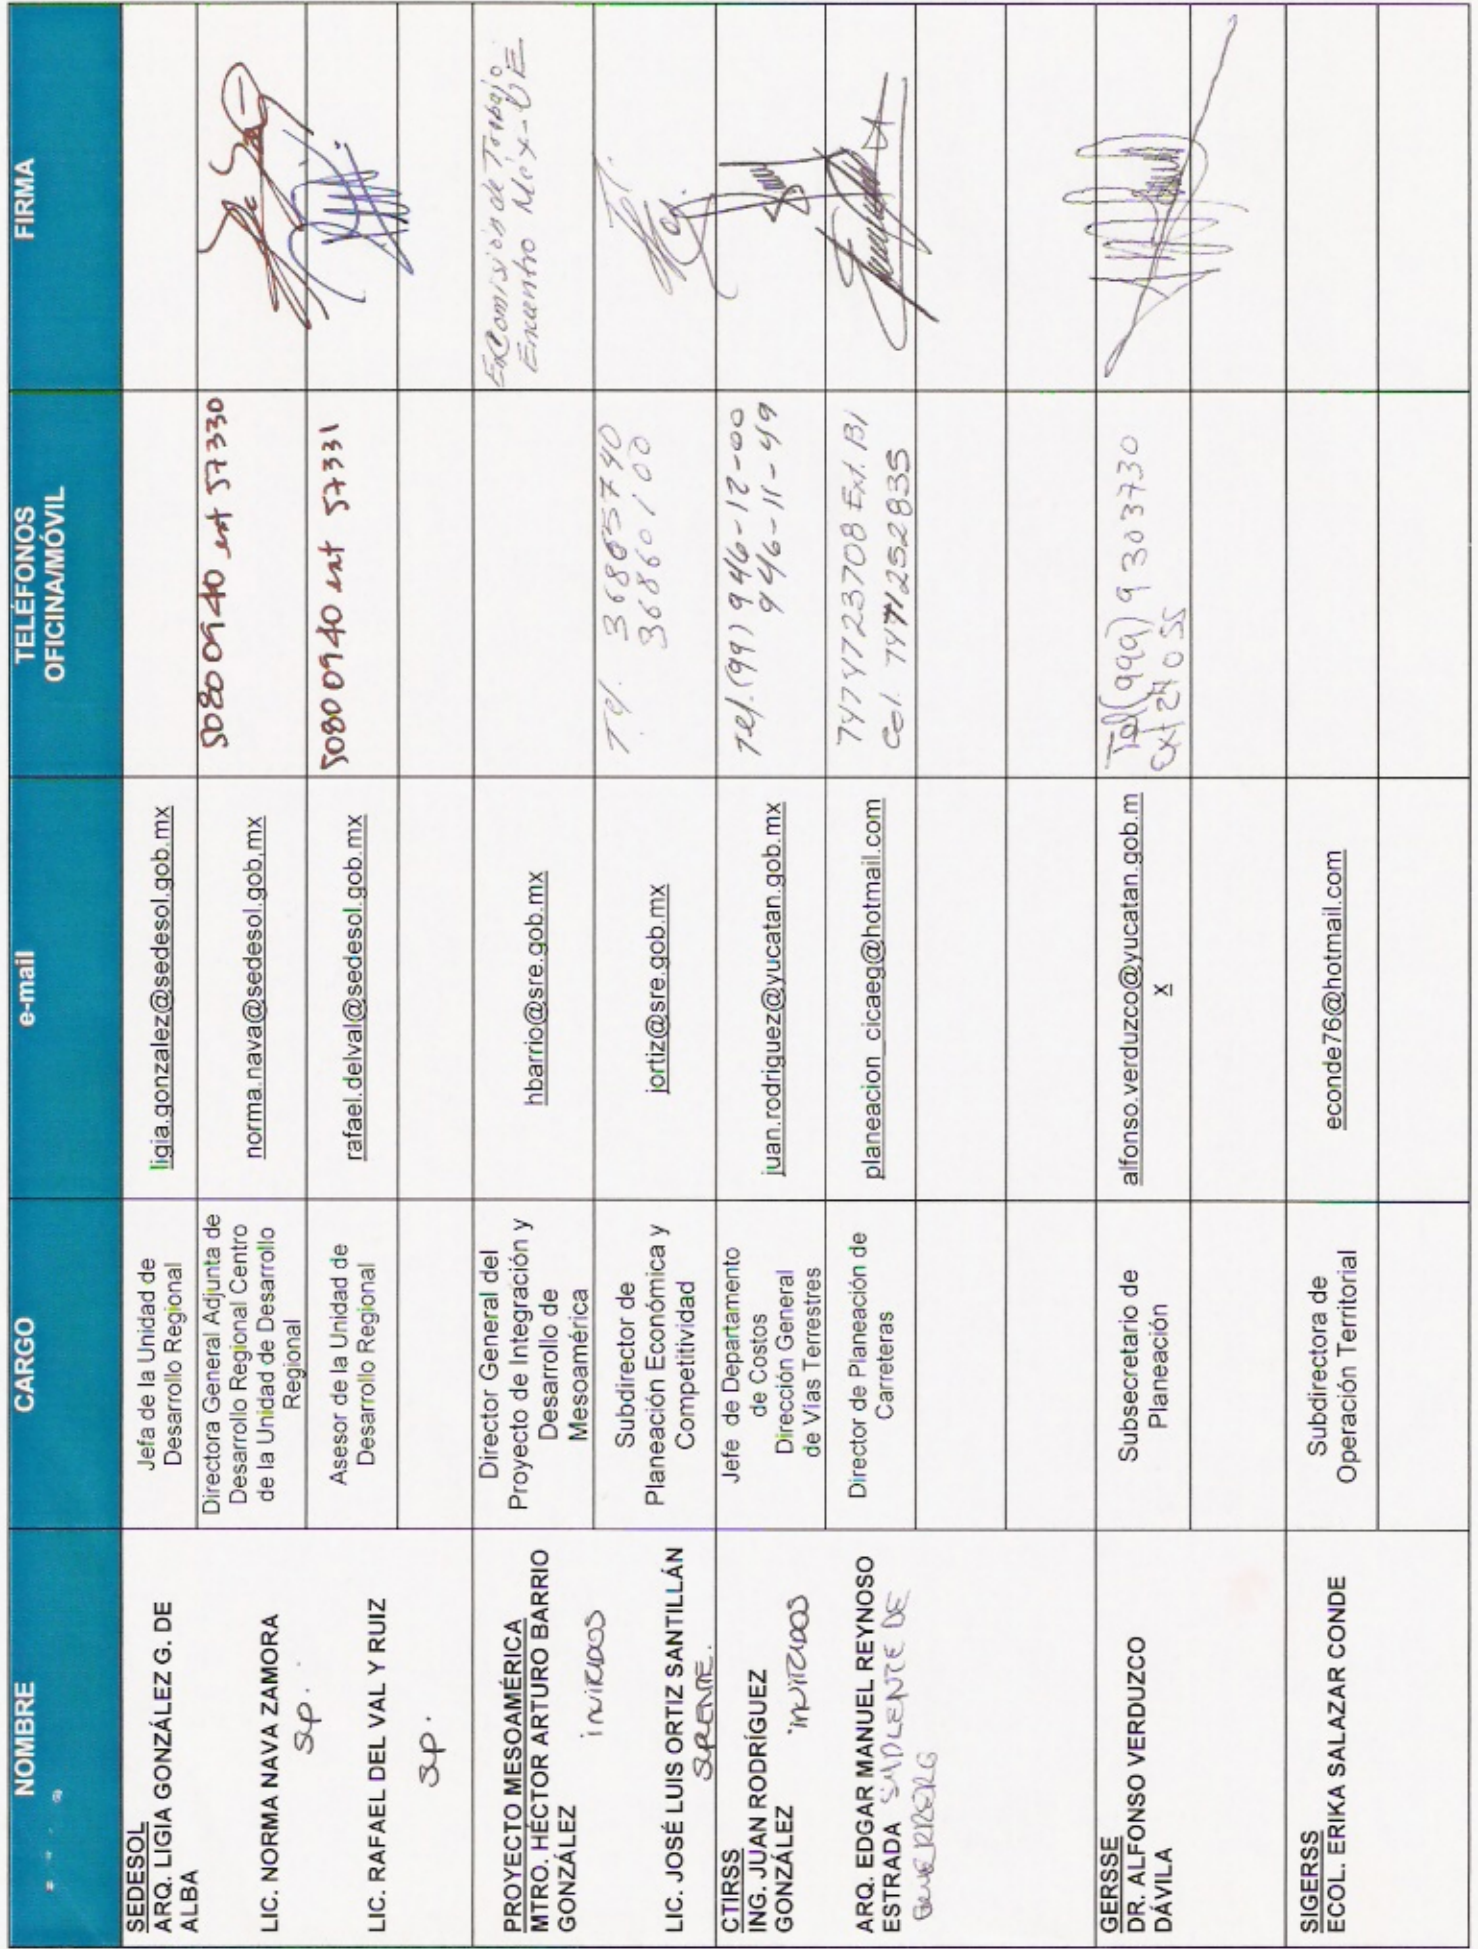 NOMBRE
CARGO
e-mail
TELÉFONOS
OFICINA/MÓVIL
FIRMA
SEDESOL
ARQ. LIGIA GONZÁLEZ G. DE
ALBA
Jefa de la Unidad de
Desarrollo Regional
ligia.gonzalez@sedesol.gob.mx
LIC. NORMA NAVA ZAMORA
Sp.
Directora General Adjunta de
Desarrollo Regional Centro
de la Unidad de Desarrollo
Regional
norma.nava@sedesol.gob.mx
5080 0940 ext 57330
LIC. RAFAEL DEL VAL Y RUIZ
Sp.
Asesor de la Unidad de
Desarrollo Regional
rafael.delval@sedesol.gob.mx
5080 0940 ext 57331
PROYECTO MESOAMÉRICA
MTRO. HÉCTOR ARTURO BARRIO
GONZÁLEZ
invitados
Director General del
Proyecto de Integración y
Desarrollo de
Mesoamérica
hbarrio@sre.gob.mx
En Comisión de Trabajo
Encuentro Méx-UE
LIC. JOSÉ LUIS ORTIZ SANTILLÁN
Subdirector de
Planeación Económica y
Competitividad
jortiz@sre.gob.mx
Tel. 36865740
36860100
CTIRSS
ING. JUAN RODRÍGUEZ
GONZÁLEZ
invitados
Jefe de Departamento
de Costos
Dirección General
de Vías Terrestres
juan.rodriguez@yucatan.gob.mx
Tel. (99) 946-12-00
946-11-49
ARQ. EDGAR MANUEL REYNOSO
ESTRADA
Director de Planeación de
Carreteras
planeacion_cicaeg@hotmail.com
7474723708 Ext. 131
Cel. 7471252835
GERSSE
DR. ALFONSO VERDUZCO
DÁVILA
Subsecretario de
Planeación
alfonso.verduzco@yucatan.gob.m
x
Tel (999) 9303730
Ext 24055
SIGERSS
ECOL. ERIKA SALAZAR CONDE
Subdirectora de
Operación Territorial
econde76@hotmail.com